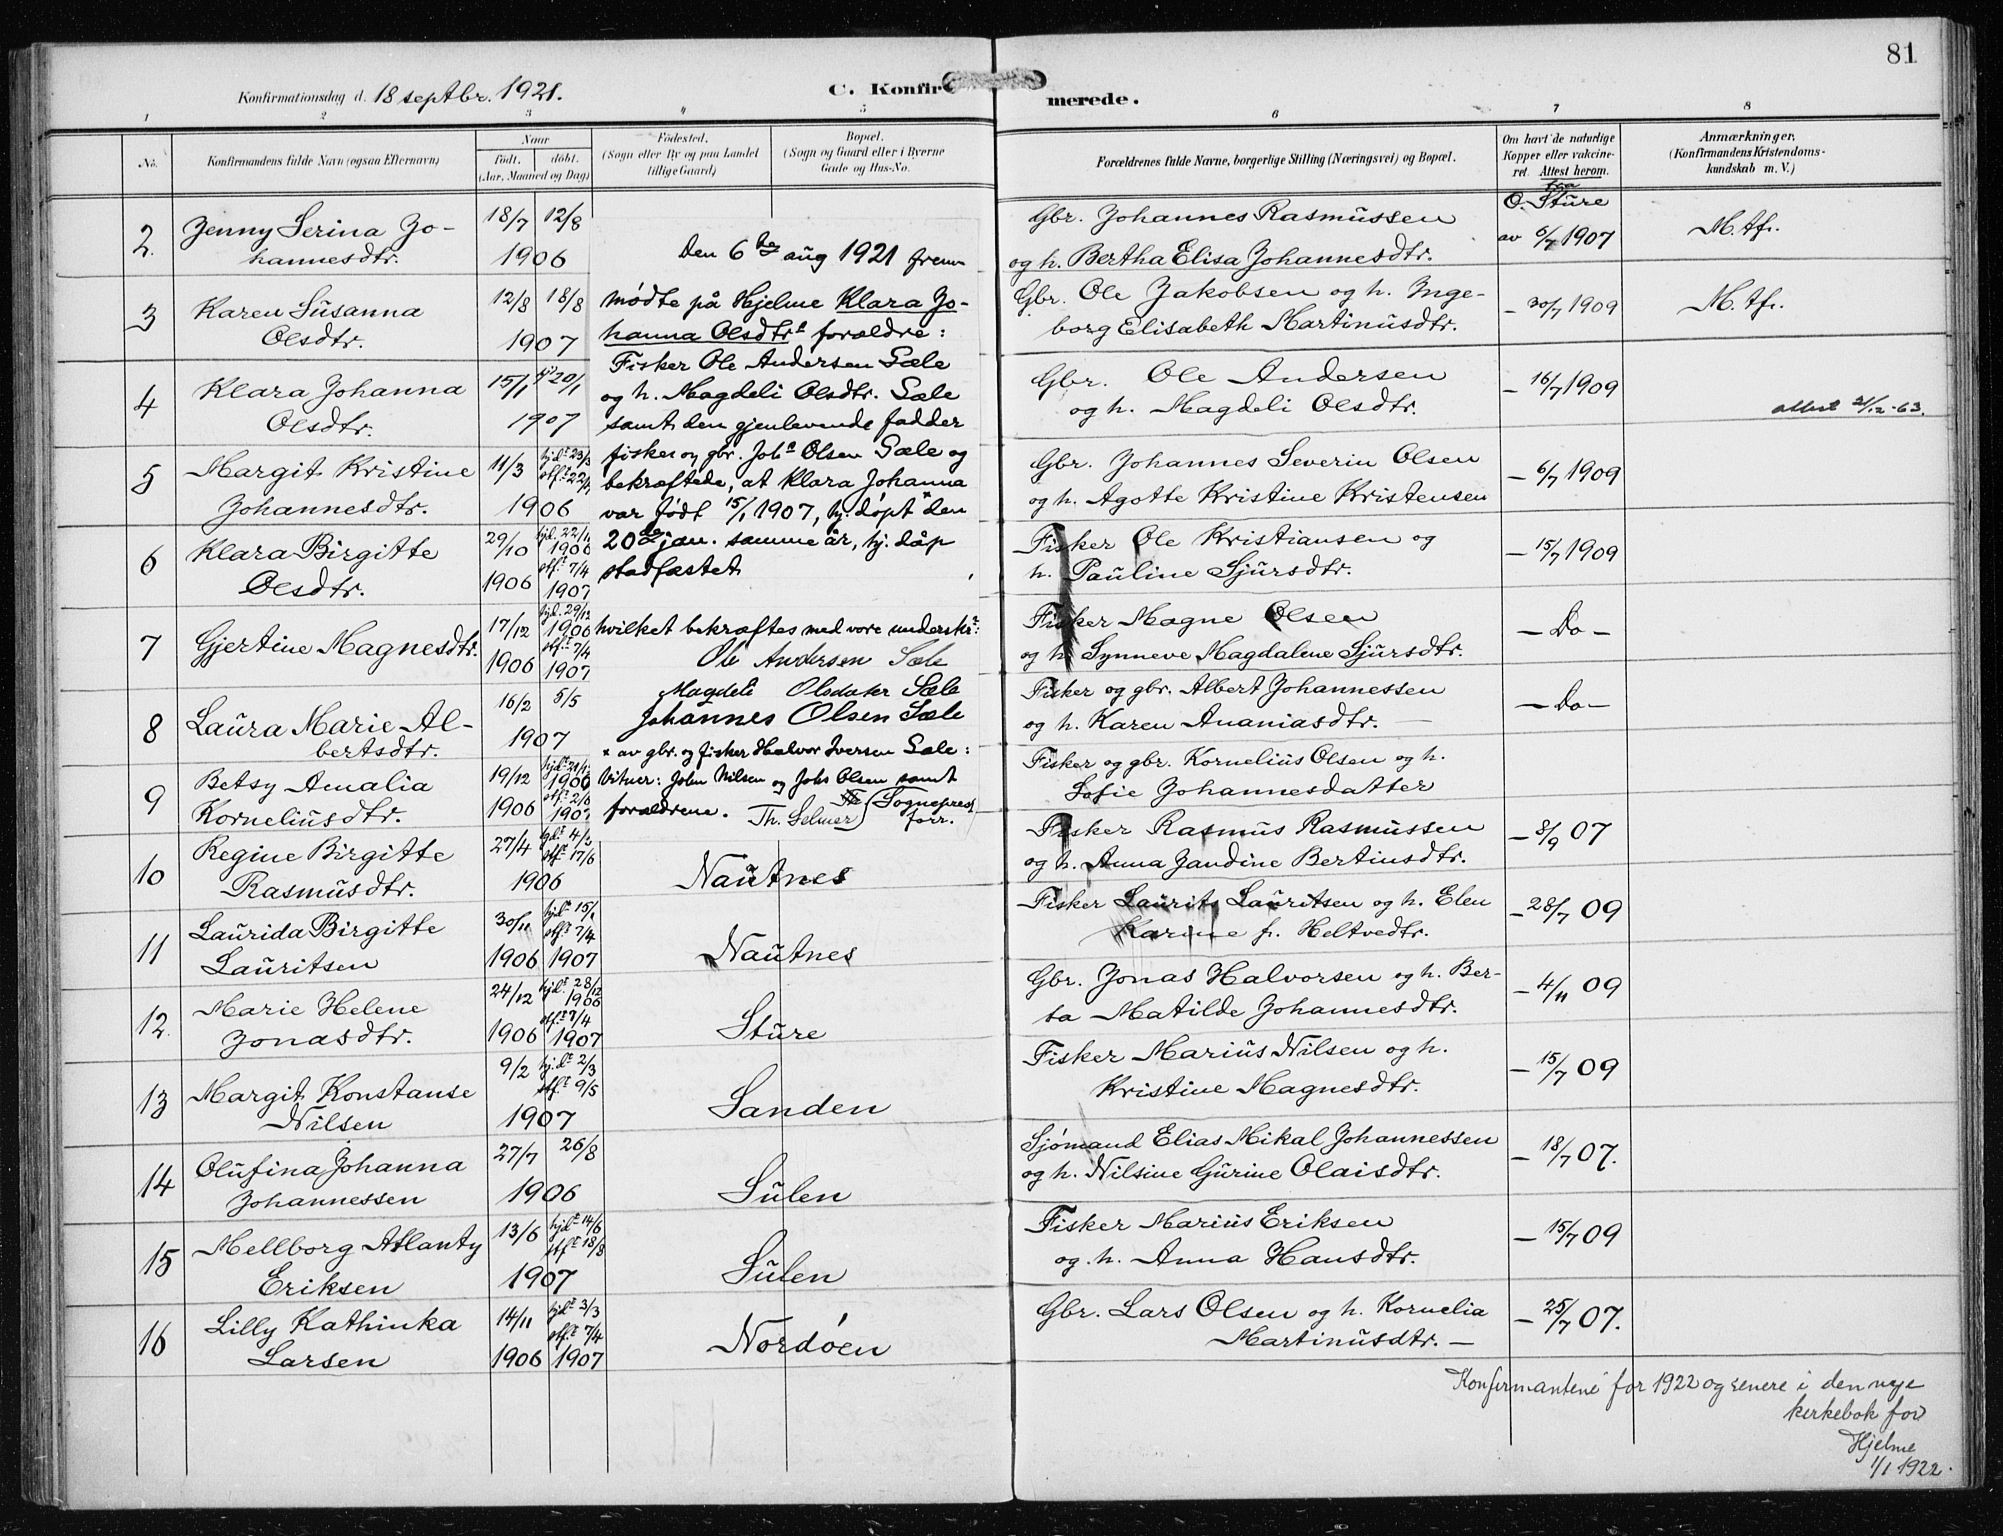 81
Konfirmationsdag d. 18 septbr. 1921.
C. Konfir
merede.
1 2 3 4 5 6 7 8
No.
Konfirmandens fulde Navn (ogsaa Efternavn)
Naar
født. døbt.
(Aar, Maaned og Dag)
Fødested.
(Sogn eller By og paa Landet
tillige Gaard)
Bopæl.
(Sogn og Gaard eller i Byerne
Gade og Hus-No.
Forældrenes fulde Navne, borgerlige Stilling (Næringsvei) og Bopæl.
Om havt de naturlige
Kopper eller vakcine-
ret. Attest herom.
Anmærkninger.
(Konfirmandens Kristendoms-
kundskab m. V.)
2. Jenny Serina Jo-
hannesdtr.
18/7 12/8
1906
Gbr. Johannes Rasmussen
og h. Bertha Elisa Johannesdtr.
O. Sture
av 6/7 1907
M. tfr.
3 Karen Susanna
Olsdtr.
12/8 18/8
1907
Gbr. Ole Jakobsen og h. Inge-
borg Elisabeth Martinusdtr.
– 30/7 1909
M. tfr.
4 Klara Johanna
Olsdtr.
15/1 20/1
1907
Gbr. Ole Andersen
og h. Magdeli Olsdtr.
– 16/7 1909
attest 21/12-63.
5 Margit Kristine
Johannesdtr.
11/3 hjdt 23/3
stf. 22/4
1906
Gbr. Johannes Severin Olsen
og h. Agotte Kristine Kristensen
– 6/7 1909
6 Klara Birgitte
Olsdtr.
29/10 hjd. 22/11
1906
stf. 7/4
1906 1907
Fisker Ole Kristiansen og
h. Pauline Sjursdtr.
– 15/7 1909
7 Gjertine Magnesdtr.
17/12 hjd. 29/12
1906
stf. 7/4
1906 1907
Fisker Magne Olsen
og h. Synneve Magdalene Sjursdtr.
– Do –
8 Laura Marie Al-
bertsdtr.
16/2 5/5
1907
Fisker og gbr. Albert Johannessen
og h. Karen Ananiasdtr. –
– Do –
9 Betsy Amalia
Korneliusdtr.
19/12
1906
stf. 2/6
1906 1907
Fisker og gbr. Kornelius Olsen og h.
Sofie Johannesdatter
Den 6te aug 1921 frem
mødte på Hjelme Klara Jo-
hanna Olsdtrs forældre:
Fisker Ole Andersen Sæle
og h. Magdeli Olsdtr. Sæle
samt den gjenlevende fadder
fisker og gbr. Johs Olsen Sæle og
bekræftede, at Klara Johanna
var født 15/1 1907, hj. døpt x den
20de jan. samme år, hj. dåp
stadfæstet
hvilket bekræftes med vore underskr:
Ole Andersen Sæle
Magdeli Olsdater Sæle
Johannes Olsen Sæle
x av gbr. og fisker Halvor Iversen Sæle:
Vitner: John Nilsen og Johs Olsen samt
forældrene. Th. Selmer Sogneprest
forr.
10 Regine Birgitte
Rasmusdtr.
27/4
stf. 17/6
1906
Nautnes
Fisker Rasmus Rasmussen
og h. Anna Jandine Bertinusdtr.
– 8/9 07
11 Laurida Birgitte
Lauritsen
30/11 hjdt 15/1
stf. 7/4
1906 1907
Nautnes
Fisker Laurits Lauritsen og h. Elen
Karine f. Heltvedtr.
– 28/7 09
12. Marie Helene
Jonasdtr.
24/12 hjd. 28/12
1906
stf. 7/4
1906 1907
Sture
Gbr. Jonas Halvorsen og h. Ber-
ta Matilde Johannesdtr.
– 4/11 09
13 Margit Konstanse
Nilsen
9/2 hjdt 2/3
stf. 9/5
1907
Sanden
Fisker Marius Nilsen og h.
Kristine Magnesdtr.
– 15/7 09
14 Olufina Johanna
Johannessen
27/7 26/8
1906
Sulen
Sjømand Elias Mikal Johannessen
og h. Nilsine Gurine Olaisdtr.
– 18/7 07.
15 Mellborg Atlanty
Eriksen
13/6 hjdt 14/6
stf. 18/8
1907
Sulen
Fisker Marius Eriksen
og. h. Anna Hansdtr.
– 15/7 09
16 Lilly Kathinka
Larsen
14/11 hjdt 3/3
stf. 7/4
1906 1907
Nordøen
Gbr. Lars Olsen og h. Kornelia
Martinusdtr. –
– 25/7 07.
Konfirmantene for 1922 og senere i den nye
kirkebok for
Hjelme
1/1 1922.